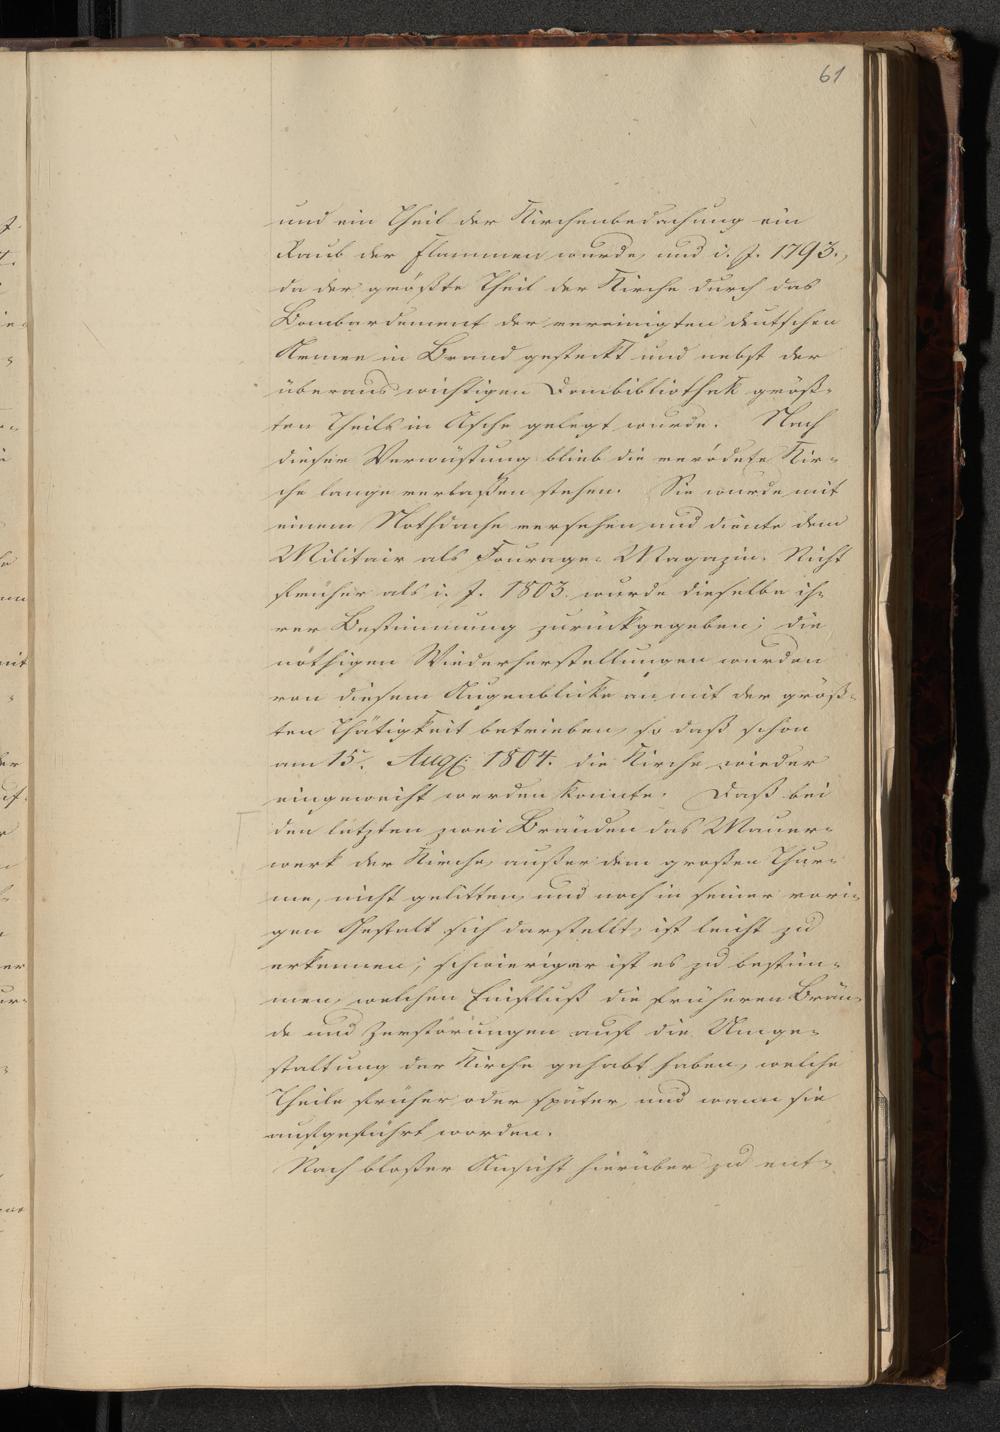 61
und ein Theil der Kirchenbedachung ein
Raub der Flammen wurde, und i. J. 1793.,
da der größte Theil der Kirche durch das
Bombardement der vereinigten deutschen
Armee in Brand gesteckt und nebst der
überaus wichtigen Dombibliothek größ-
ten Theils in Asche gelegt wurde. Nach
dieser Verwüstung blieb die verödete Kir-
che lange verlaßen stehen. Sie wurde mit
einem Nothdache versehen und diente dem
Militair als Fourage-Magazin. Nicht
früher als i. J. 1803. wurde dieselbe ih-
rer Bestimmung zurückgegeben; die
nöthigen Wiederherstellungen wurden
von diesem Augenblicke an mit der größ-
ten Thätigkeit betrieben, so daß schon
am 15. Aug. 1804. die Kirche wieder
eingeweiht werden konnte. Daß bei
den letzten zwei Bränden das Mauer-
werk der Kirche, außer dem großen Thur-
me, nicht gelitten, und noch in seiner vori-
gen Gestalt sich darstellt, ist leicht zu
erkennen; schwieriger ist es zu bestim-
men, welchen Einfluß die früheren Brän-
de und Zerstörungen auf die Umge-
staltung der Kirche gehabt haben, welche
Theile früher oder später, und wann sie
aufgeführt worden.
Nach bloßer Ansicht hierüber zu ent-